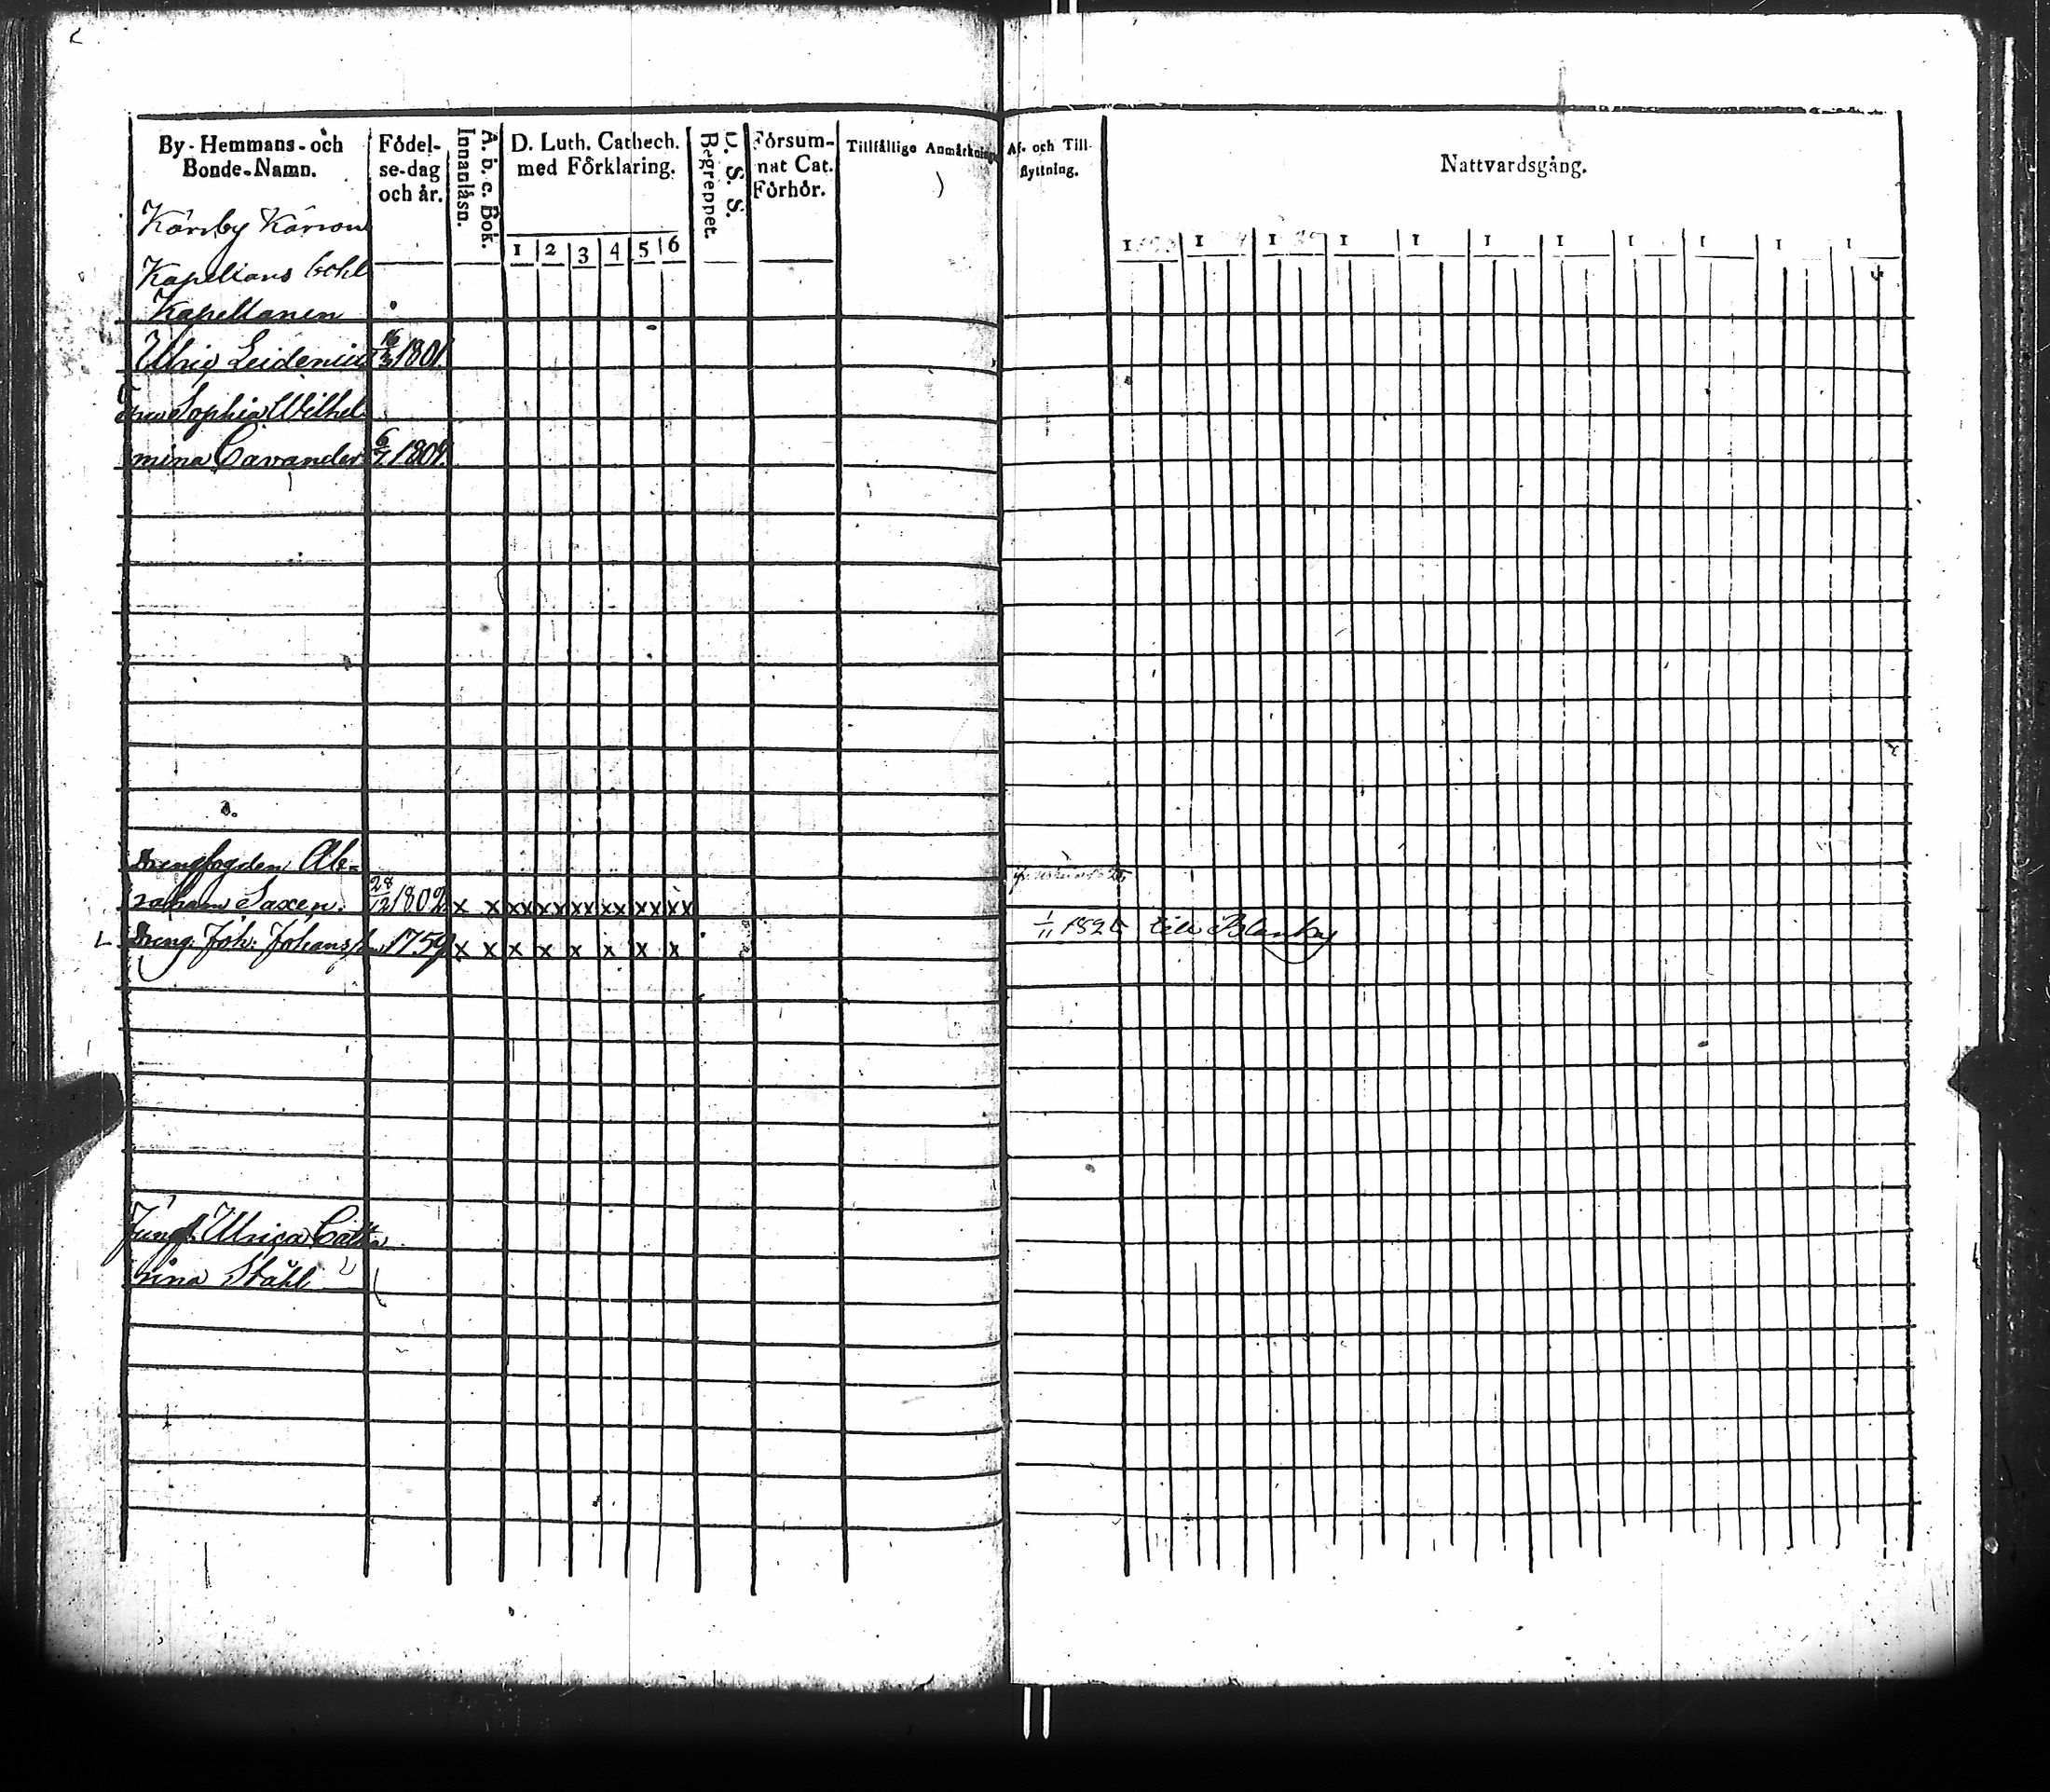 By-Hemmans-och Bonde-Namn.
Födel-se-dag och år.
A. b. c. Bok.
Innanläsn.
D. Luth. Cathech. med Förklaring.
1 2 3 4 5 6
D. S. S.
Begreppet.
Försum-nat Cat. Förhör.
Tillfällige Anmärkningar
Af- och Till-flyttning.
Nattvardsgång.
1 1 1 1 1 1 1 1 1 1 1
Kapellans bohl
Kapellanen
Ulric Leidenius 16/3 1801.
Fru Sophia Wilhel
mina Cavander 6/7 1804.
Drengfogden Ab=
raham Saxen. 28/12 1802 x x xx xx xx xx xx xx
L Dreng Joh: Johansson 1759 x x x x x x x x 1/11 1825 till Blankby
Jungf. Ulrica Catha
rina Ståhl